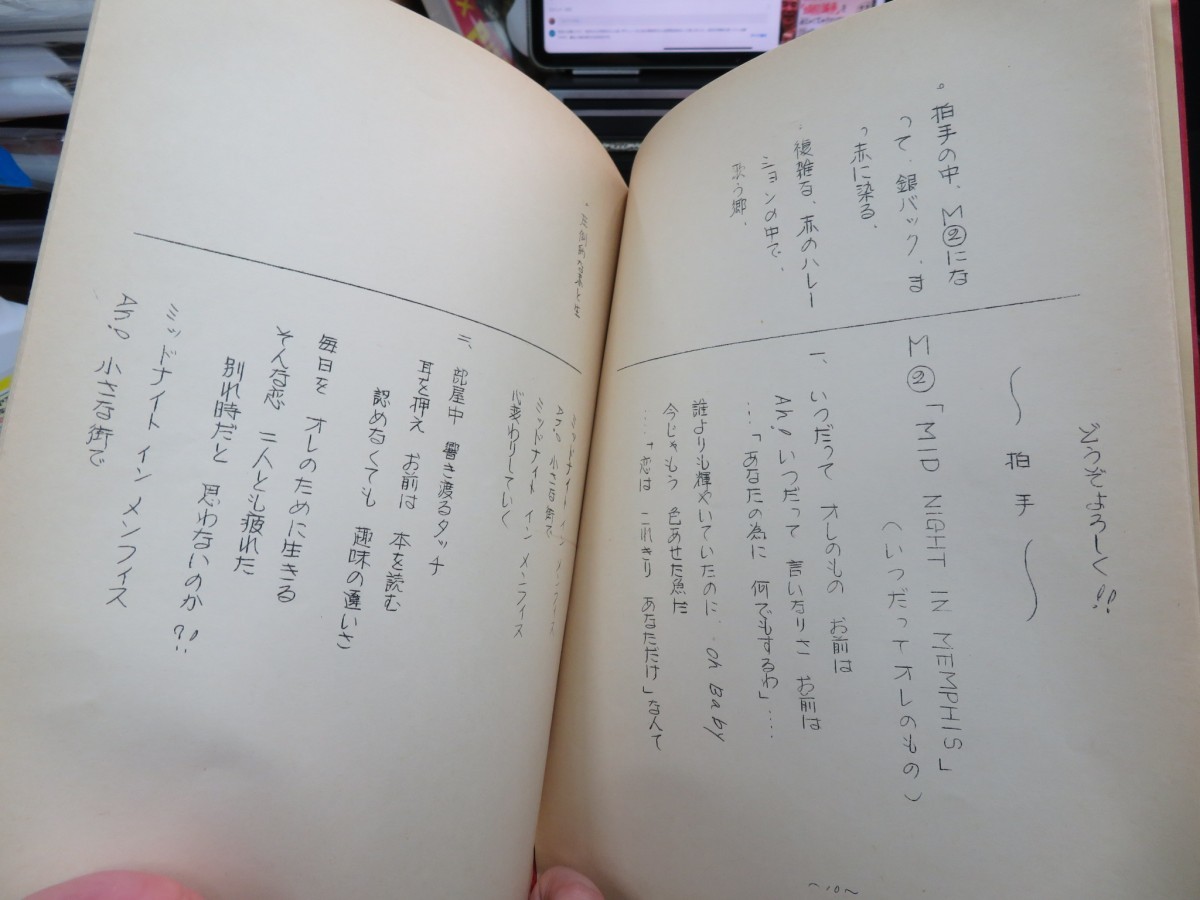 どうぞよろしく!!
〜拍手〜
。拍手の中、M②にな
って、銀バック、ま
っ赤に染る、
。複雑な、赤のハレー
ションの中で、
歌う郷、
M②「MID NIGHT IN MEMPHIS」
(いつだってオレのもの)
一、いつだって オレのもの お前は
Ah! いつだって 言いなりさ お前は
…「あなたの為に 何でもするわ」…
誰よりも輝やいていたのに、Oh Baby
今じゃもう 色あせた魚だ
…「恋は これきり あなただけ」なんて
〜10〜
ミッドナイト イン メンフィス
Ah! 小さな街で
ミッドナイト イン メンフィス
心変わりしていく
二、部屋中 響き渡るタッチ
耳を押え お前は 本を読む
認めなくても 趣味の違いさ
毎日を オレのために生きる
そんな恋 二人とも疲れた
別れ時だと 思わないのか?!
ミッドナイト イン メンフィス
Ah! 小さな街で